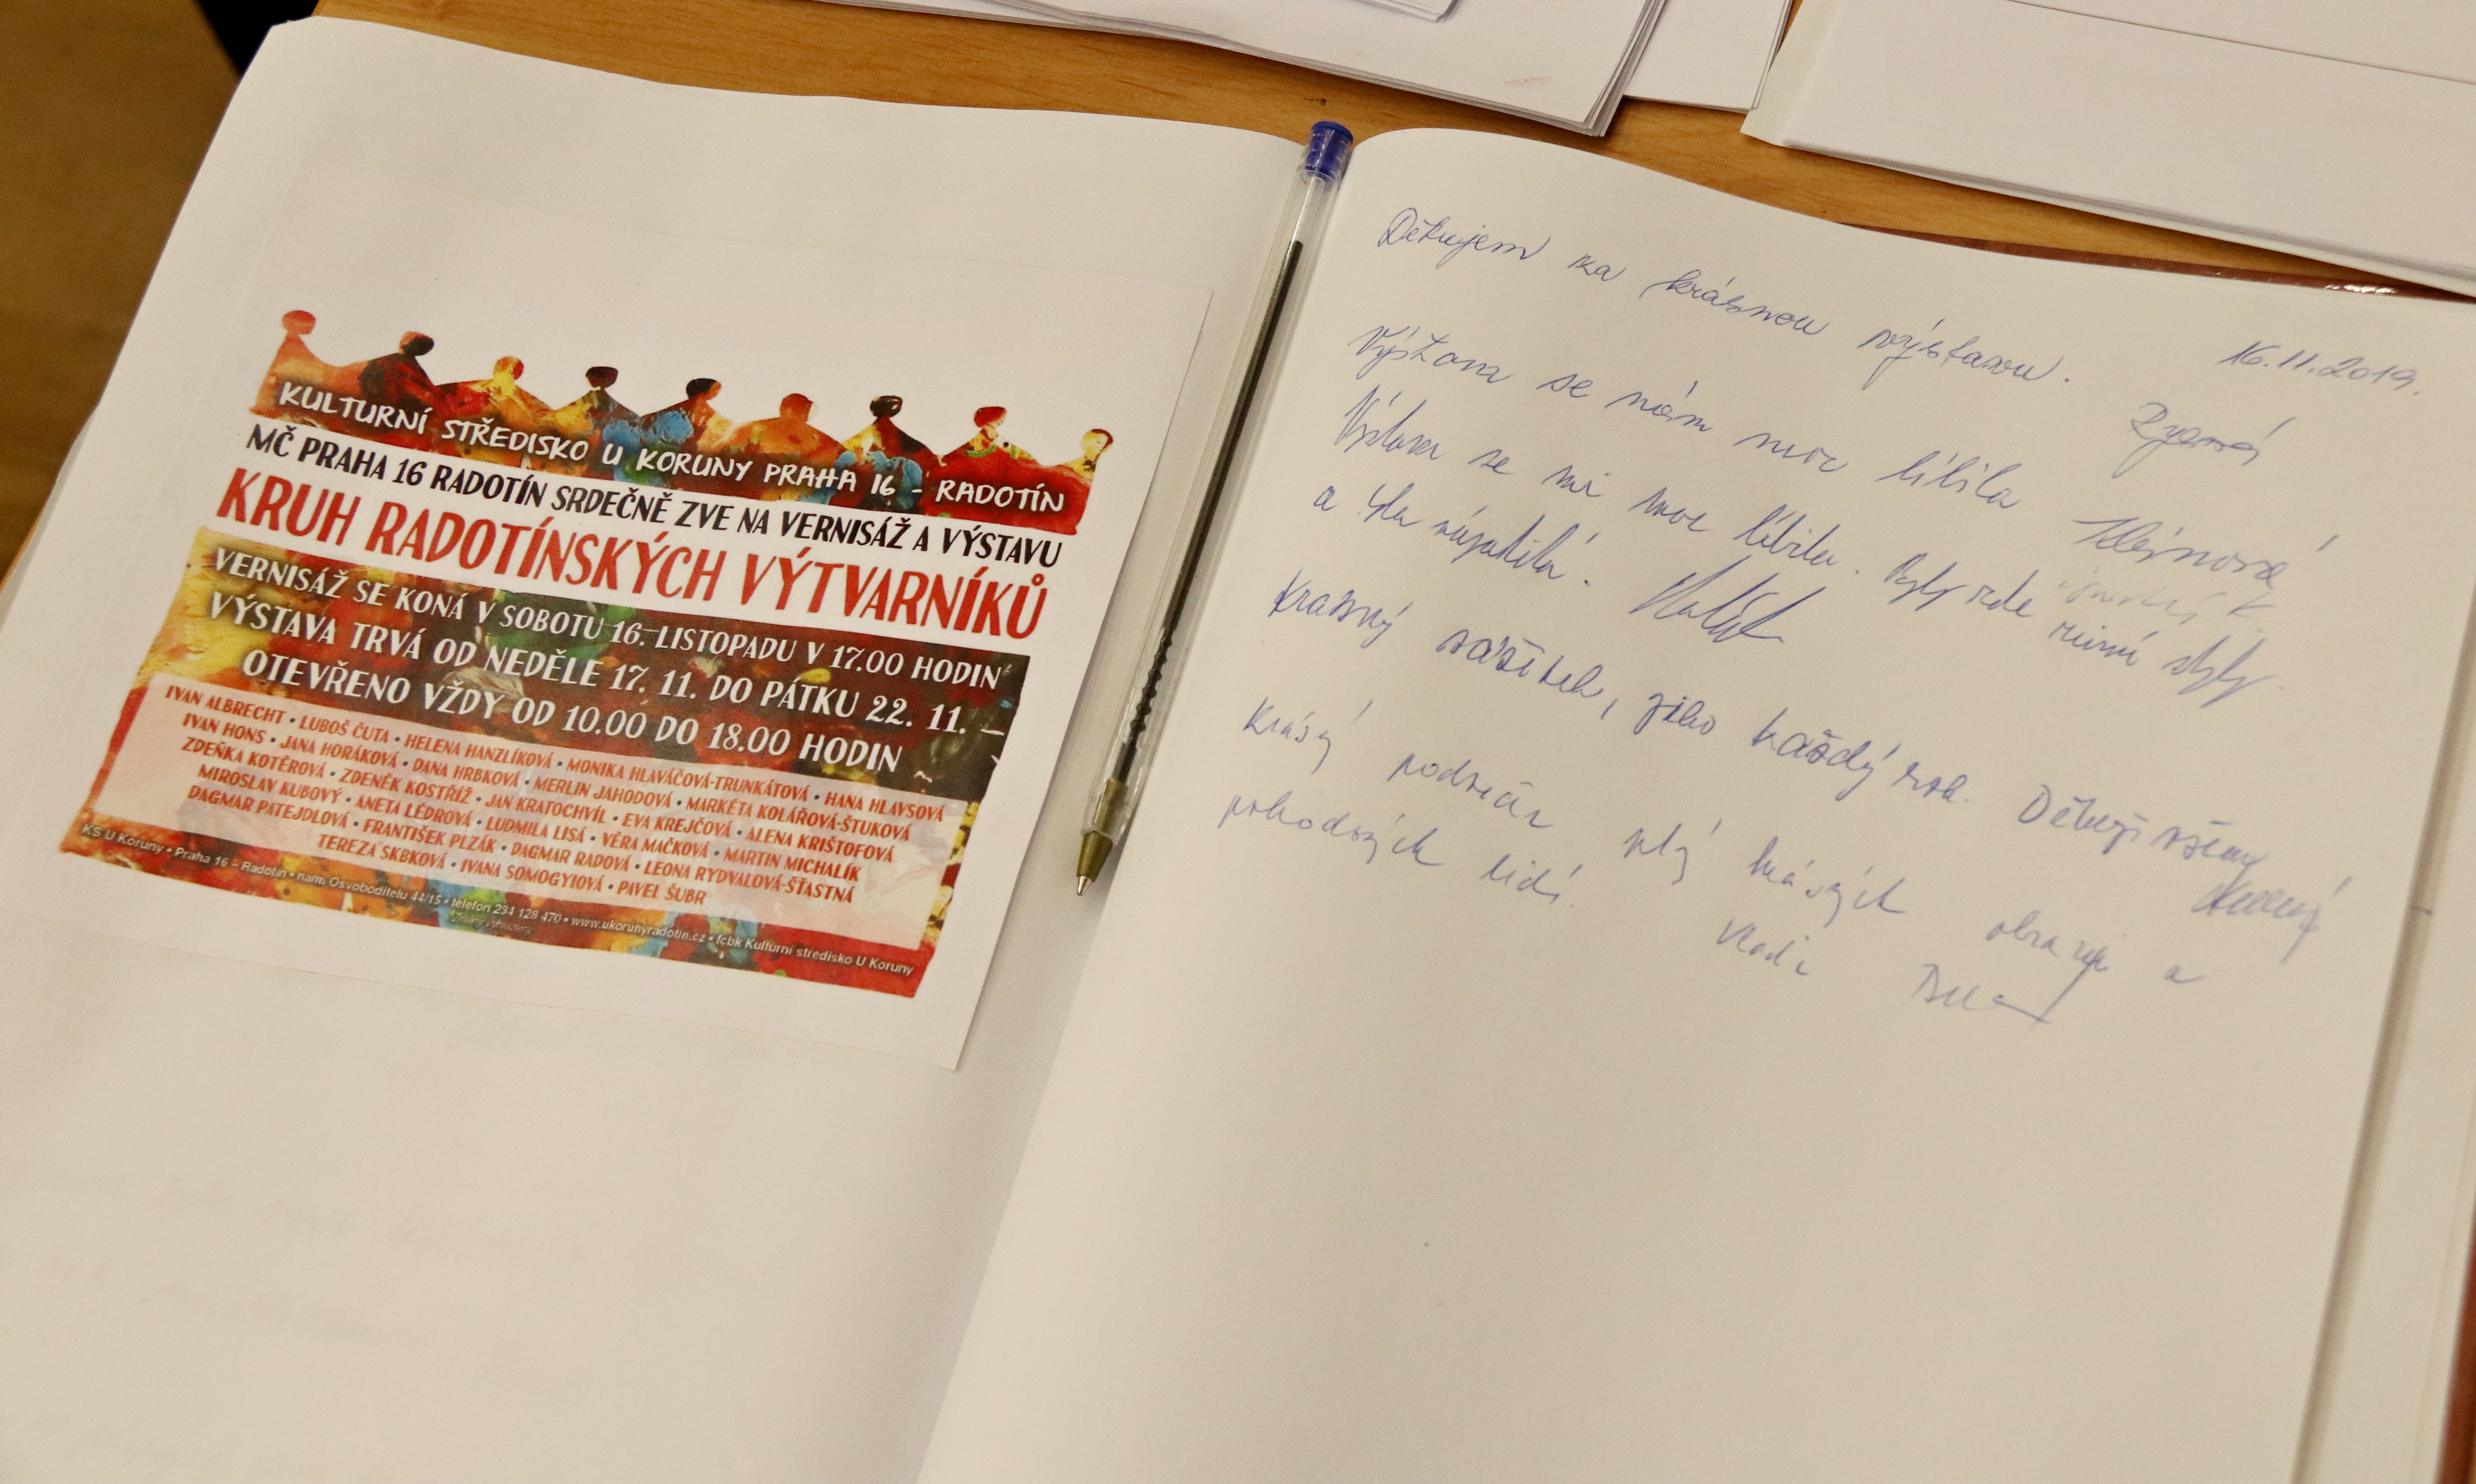 KULTURNÍ STŘEDISKO U KORUNY PRAHA 16 - RADOTÍN
MČ PRAHA 16 RADOTÍN SRDEČNĚ ZVE NA VERNISÁŽ A VÝSTAVU
KRUH RADOTÍNSKÝCH VÝTVARNÍKŮ
VERNISÁŽ SE KONÁ V SOBOTU 16. LISTOPADU V 17.00 HODIN
VÝSTAVA TRVÁ OD NEDĚLE 17. 11. DO PÁTKU 22. 11. –
OTEVŘENO VŽDY OD 10.00 DO 18.00 HODIN
IVAN ALBRECHT • LUBOŠ ČUTA • HELENA HANZLÍKOVÁ • MONIKA HLAVÁČOVÁ-TRUNKÁTOVÁ • HANA HLAVSOVÁ
IVAN HONS • JANA HORÁKOVÁ • DANA HRBKOVÁ • MERLIN JAHODOVÁ • MARKÉTA KOLÁŘOVÁ-ŠTUKOVÁ
ZDEŇKA KOTĚROVÁ • ZDENĚK KOSTŘÍŽ • JAN KRATOCHVÍL • EVA KREJČOVÁ • ALENA KRIŠTOFOVÁ
MIROSLAV KUBOVÝ • ANETA LÉDROVÁ • LUDMILA LISÁ • VĚRA MAČKOVÁ • MARTIN MICHALÍK
DAGMAR PATEJDLOVÁ • FRANTIŠEK PLZÁK • DAGMAR RADOVÁ • LEONA RYDVALOVÁ-ŠŤASTNÁ
TEREZA SKBKOVÁ • IVANA SOMOGYIOVÁ • PAVEL ŠUBR
KS U Koruny • Praha 16 – Radotín • nám. Osvoboditelů 44/15 • telefon 234 128 470 • www.ukorunyradotin.cz • fcbk Kulturní středisko U Koruny
Změny vyhrazeny
Děkujem za krásnou výstavu. 16.11.2019.
Výstava se nám moc líbila
Výstava se mi moc líbila. Byly zde různé styly
a byla nápaditá.
Krásný zážitek, jako každý rok. Děkuji všem
Krásý podvečer plý krásých obrazů a
pohodových lidí.